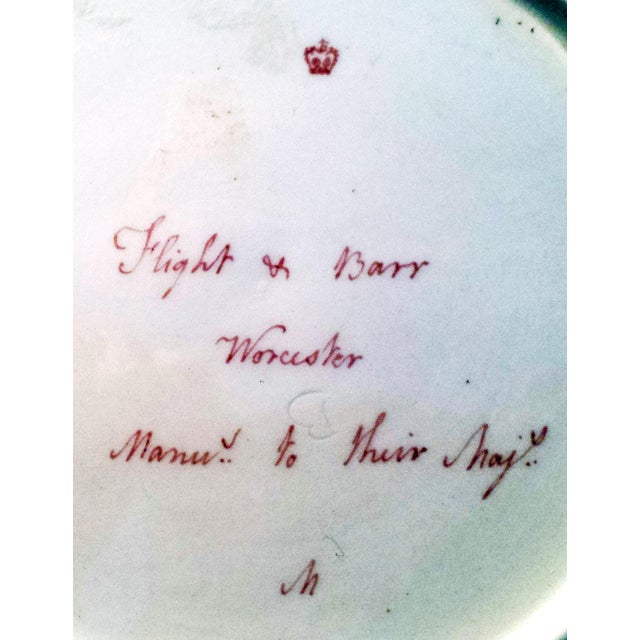 Flight & Barr
Worcester
Manu.s to their Maj.s
B
M